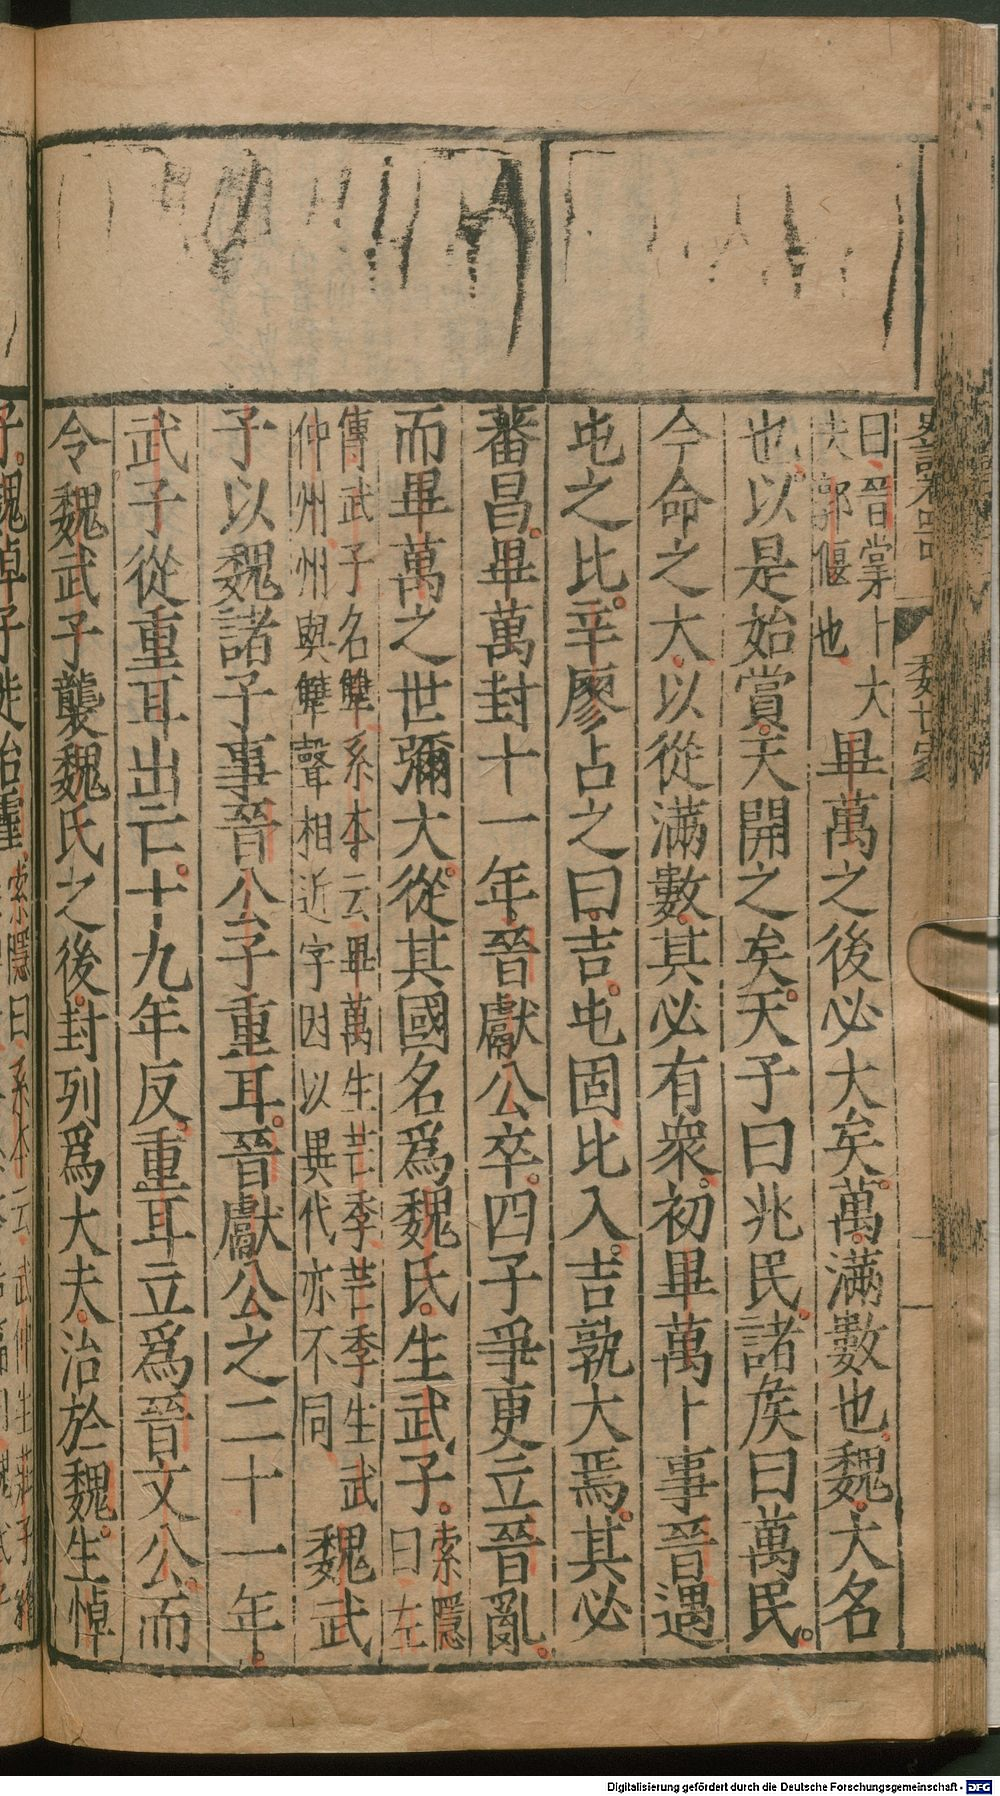 史記卷四
魏世家
曰晉掌卜大夫郭偃也 畢萬之後必大矣萬滿數也魏大名
也以是始賞天開之矣天子曰兆民諸侯曰萬民
今命之大以從滿數其必有衆初畢萬卜事晉遇
屯之比辛廖占之曰吉屯固比入吉孰大焉其必
蕃昌畢萬封十一年晉獻公卒四子爭更立晉亂
而畢萬之世彌大從其國名爲魏氏生武子 索隱曰左
傳武子名犨系本云畢萬生芒季芒季生武仲州州與犨聲相近字因以異代亦不同 魏武
子以魏諸子事晉公子重耳晉獻公之二十一年
武子從重耳出亡十九年反重耳立爲晉文公而
令魏武子襲魏氏之後封列爲大夫治於魏生悼
子魏悼子徙治霍 索隱曰系本云武仲生莊子
Digitalisierung gefördert durch die Deutsche Forschungsgemeinschaft - DFG